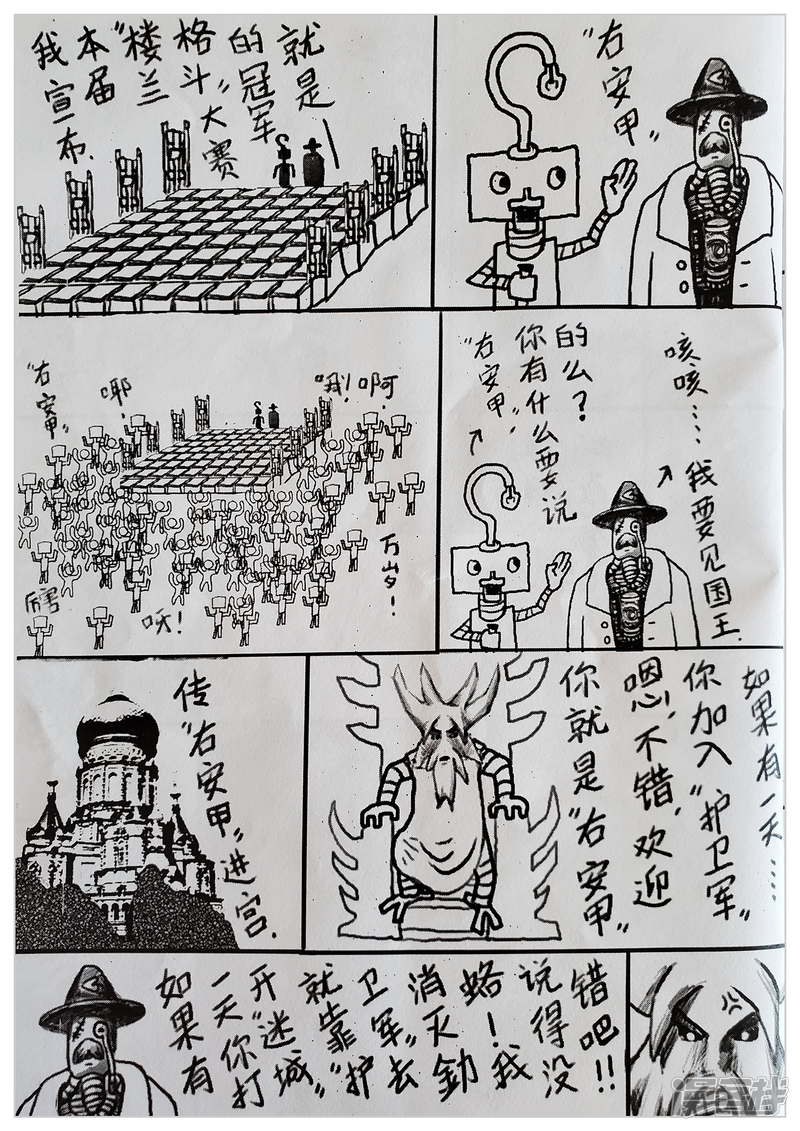 我宣布.
本届
“楼兰
格斗”大赛
的冠军
就是—
“右安甲”
“右安甲”
耶!
哦!
啊
万岁!
厉害
呀!
“右安甲”,
你有什么要说
的么?
咳咳……
我要见国王.
传“右安甲”进宫.
你就是“右安甲”
嗯!不错,欢迎
你加入“护卫军”
如果有一天……
如果有
一天你打
开“迷城”
就靠“护
卫军”去
消灭釛
蛒!我
说得没
错吧!!